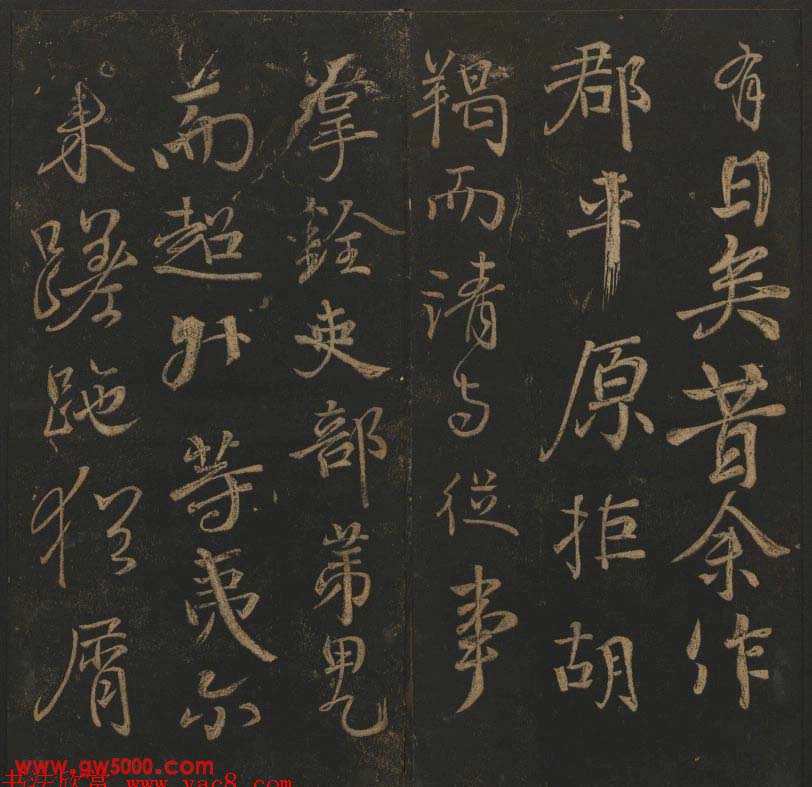 有日矣昔余作
郡平原拒胡
羯而請与從事
掌銓吏部第甲乙
而超升等夷尔
來蹉跎猶屑
www.gw5000.com
书法欣赏 www.yac8.com